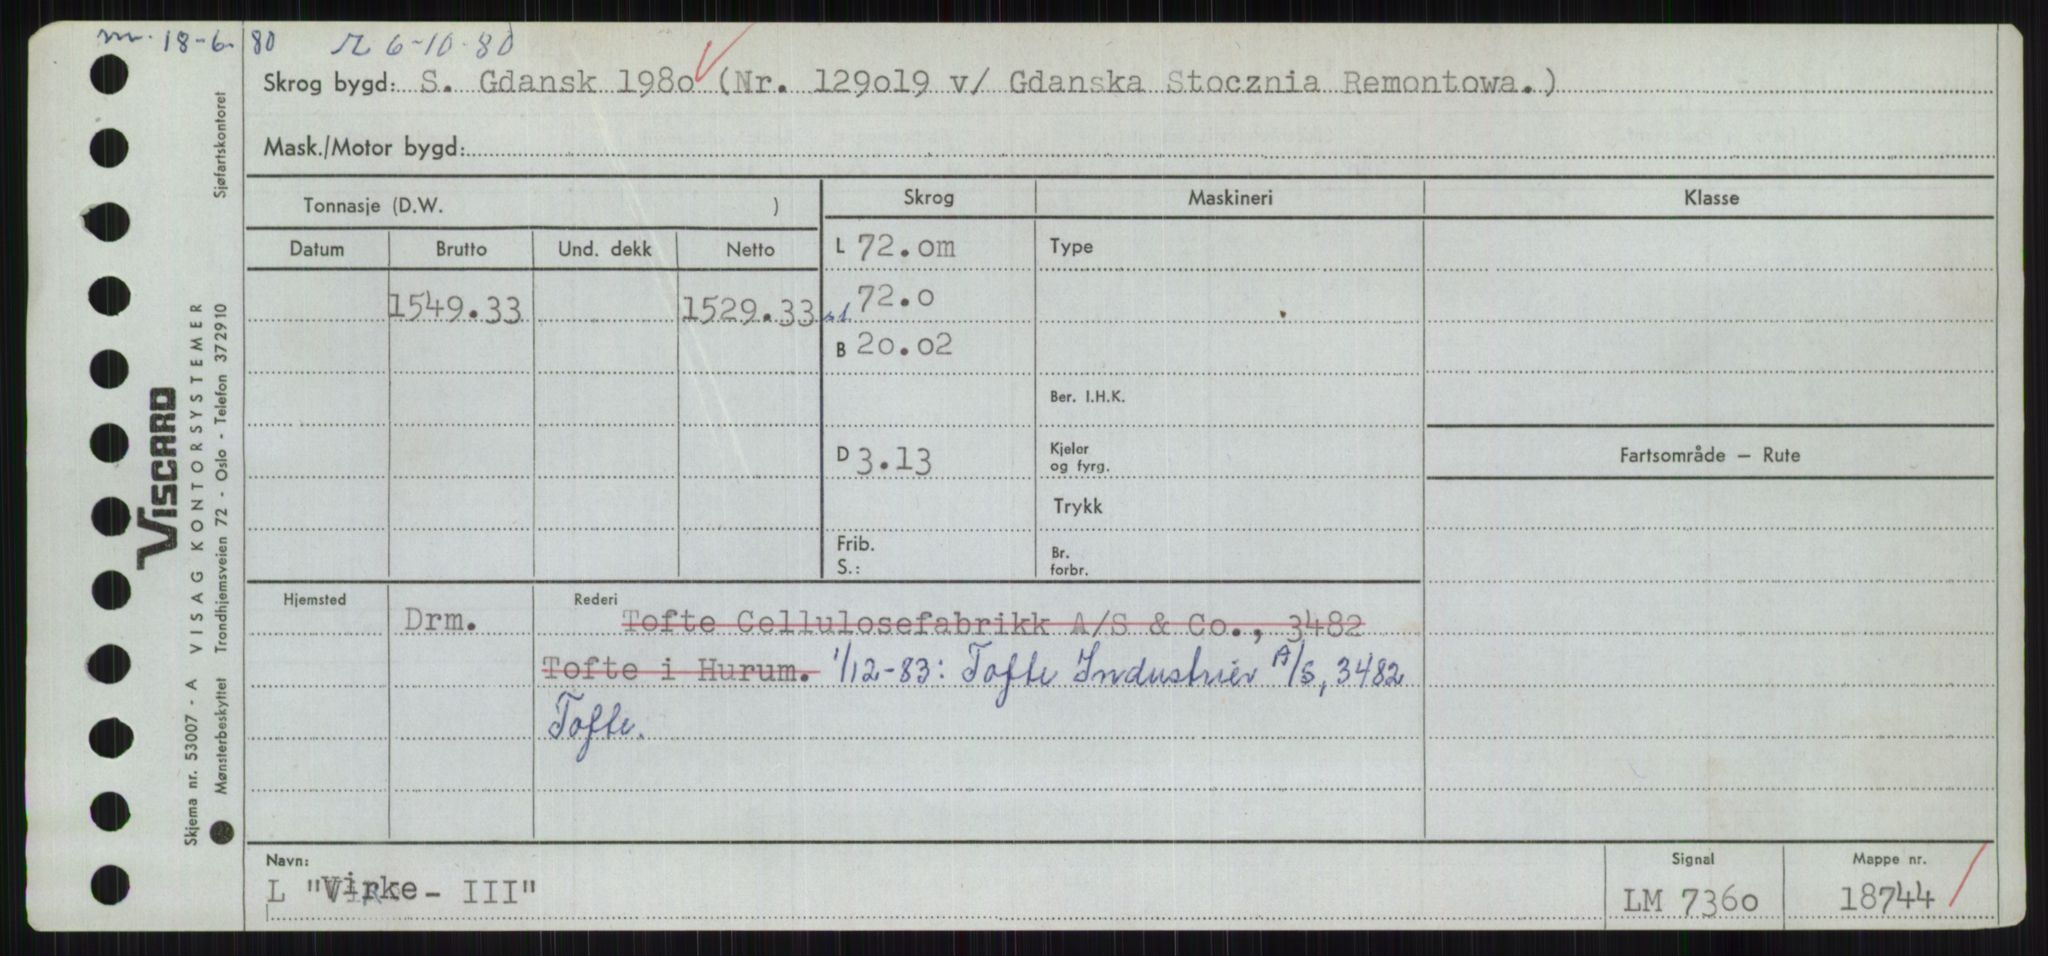 m. 18-6. 80 R 6-10-80
Skrog bygd: S. Gdansk 198o (Nr. 129o19 v/ Gdanska Stocznia Remontowa.)
Mask./Motor bygd:
Tonnasje (D.W. )
Skrog
Maskineri
Klasse
Datum
Brutto
Und. dekk
Netto
L 72.om
Type
1549.33
1529.33
72.o
B 2o.o2
Ber. I.H.K.
D 3.13
Kjeler
og fyrg.
Fartsområde – Rute
Trykk
Frib.
S.:
Br.
forbr.
Hjemsted
Drm.
Rederi
Tofte Cellulosefabrikk A/S & Co., 3482
Tofte i Hurum. 1/12-83: Tofte Industrier A/S, 3482
Tofte.
Navn:
L "Virke - III"
Signal
LM 736o
Mappe nr.
18744
Sjøfartskontoret
VISCARD
VISAG KONTORSYSTEMER
Trondhjemsveien 72 - Oslo - Telefon 372910
Skjema nr. 53007 - A
Mønsterbeskyttet